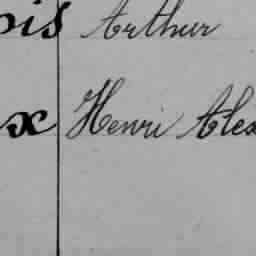 ois Arthur
x Henri Alex